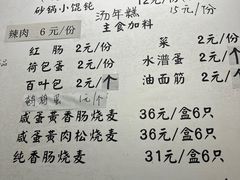 砂锅小馄饨 12元/份
汤年糕 15元/份
辣肉 6元/份 主食加料
红肠 2元/份 菜 2元/份
荷包蛋 2元/份 水潽蛋 2元/
百叶包 2元/个 油面筋 2元/
鹌鹑蛋 1元/个
咸蛋黄香肠烧麦 36元/盒6只
咸蛋黄肉松烧麦 36元/盒6只
纯香肠烧麦 31元/盒6只